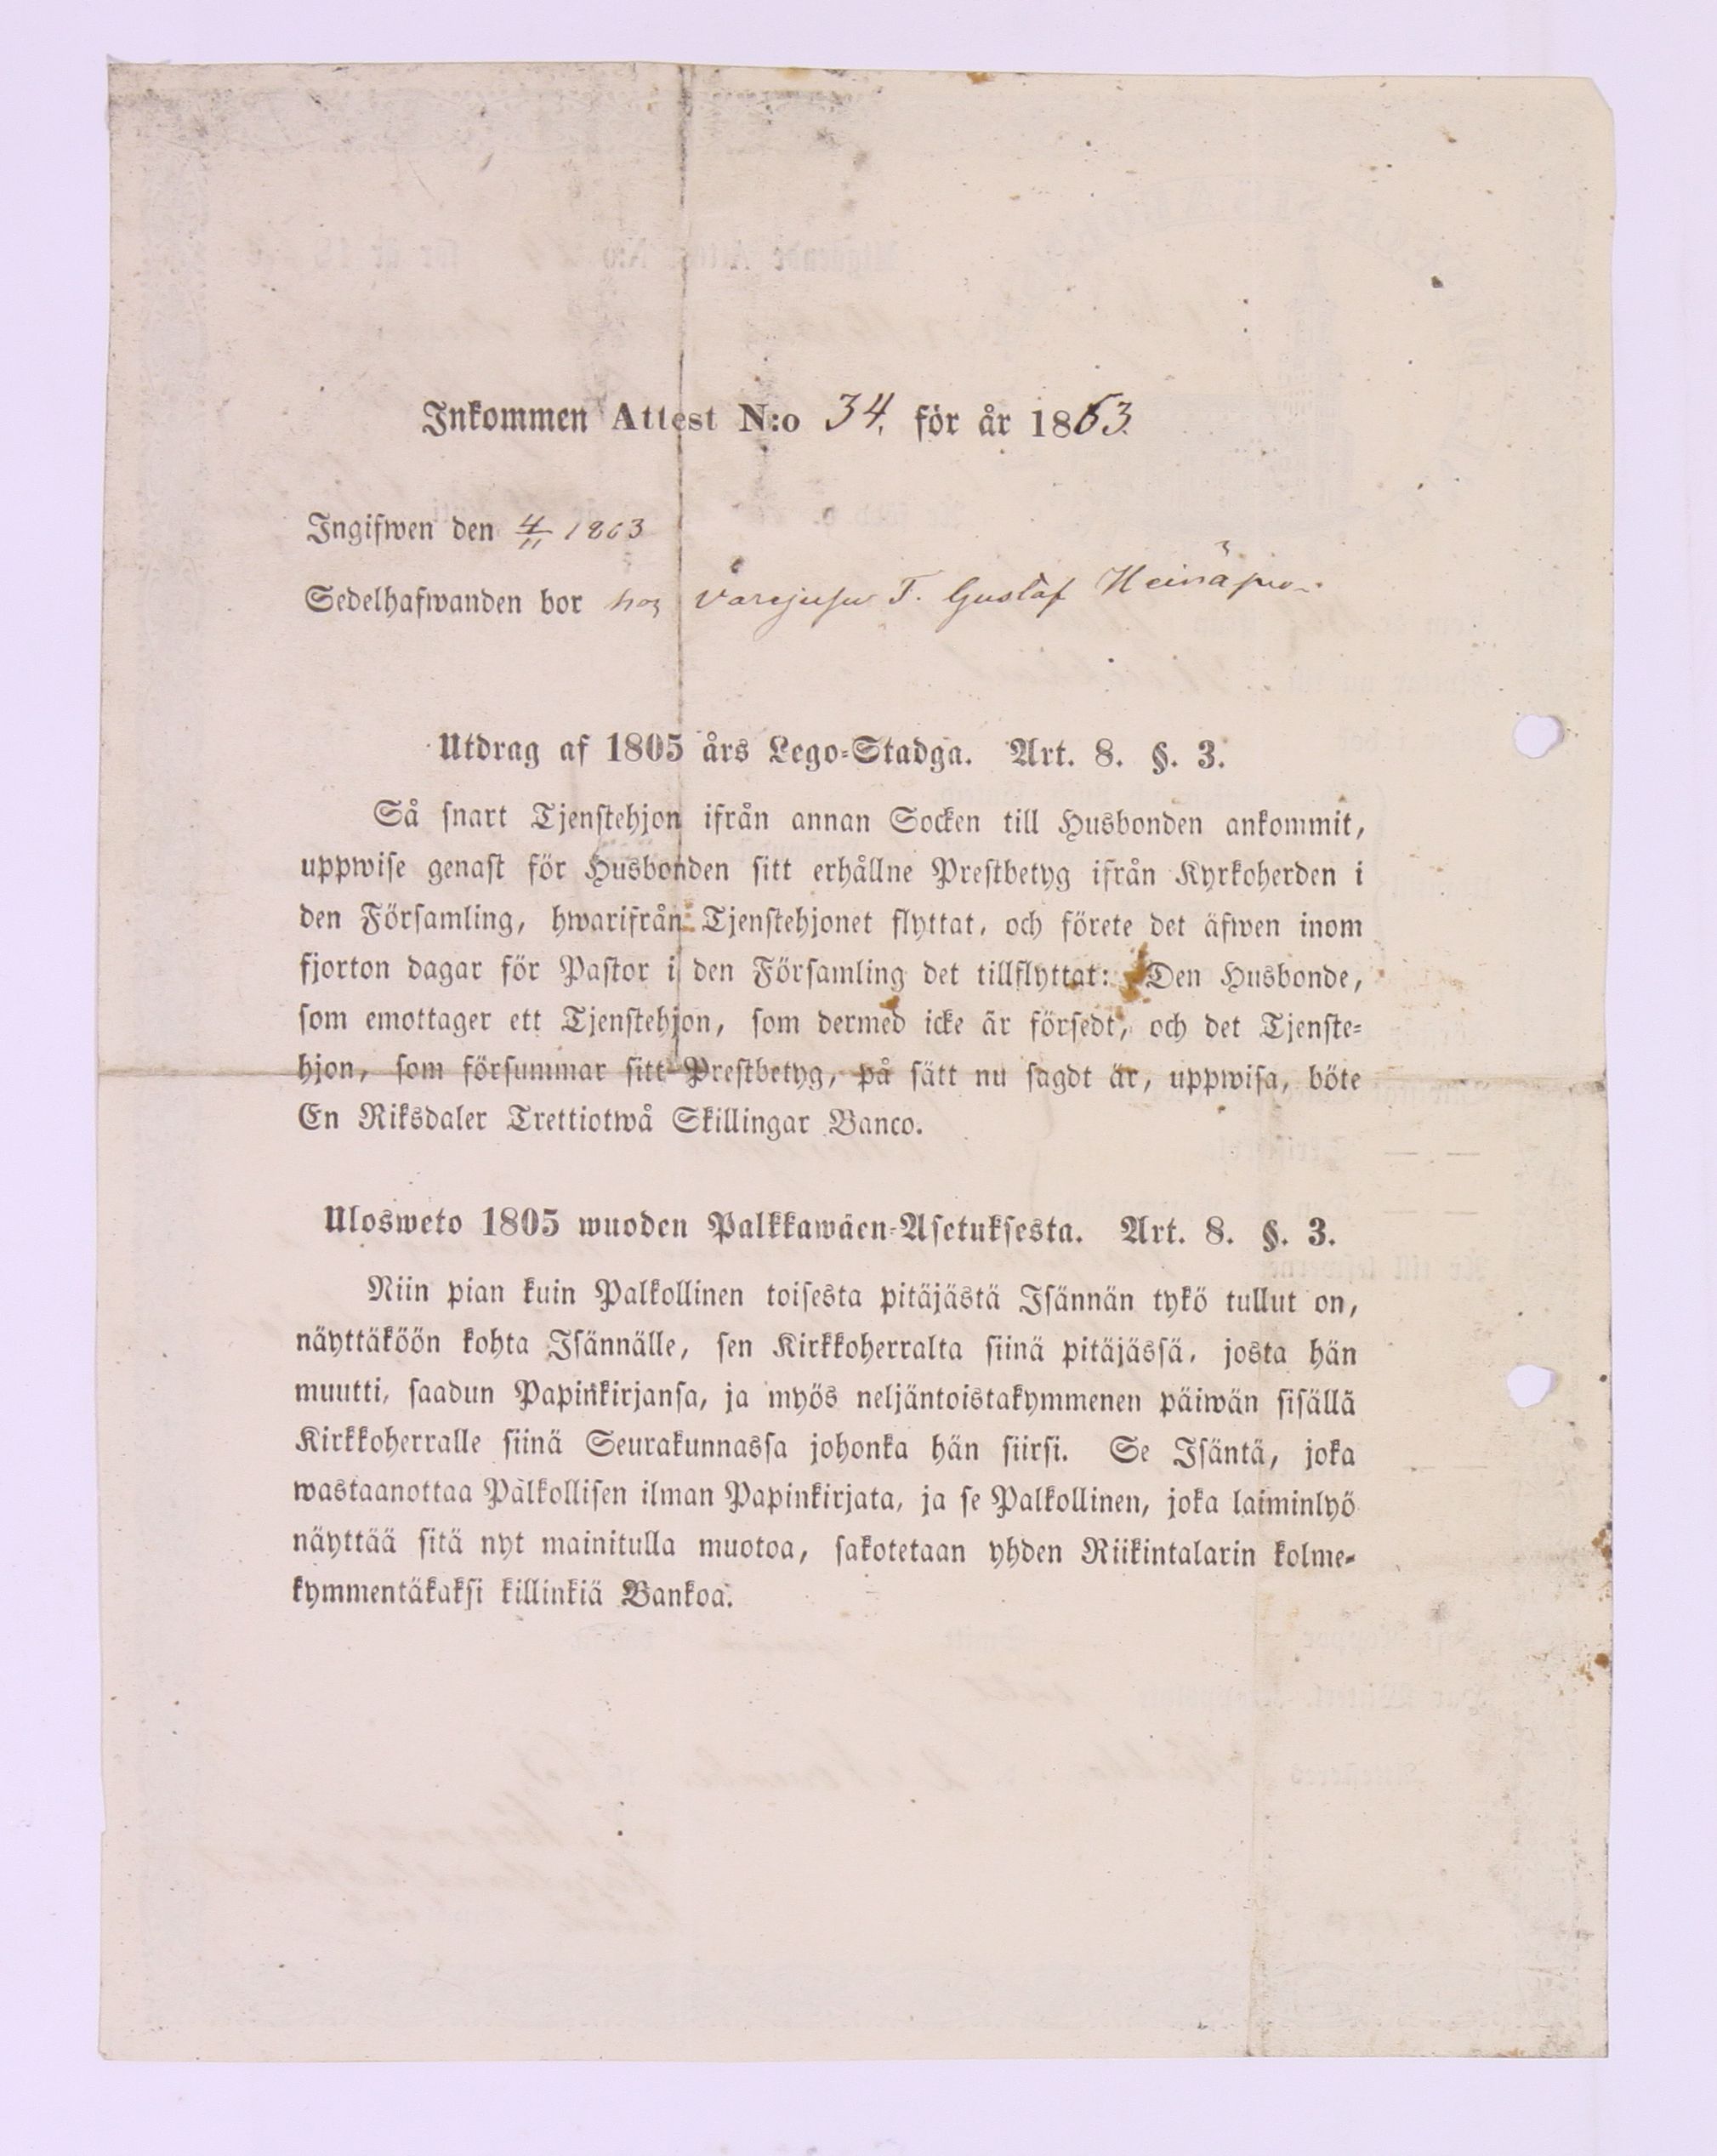 Inkommen Attest N:o 34. för år 1863.
Ingifwen den 4/11 1863
Sedelhafwanden bor hos T. Gustaf
Utdrag af 1805 års Lego-Stadga. Art. 8. §. 3.
Så snart Tjenstehjon ifrån annan Socken till Husbonden ankommit,
uppwise genast för Husbonden sitt erhållne Prestbetyg ifrån Kyrkoherden i
den Församling, hwarifrån Tjenstehjonet flyttat, och förete det äfwen inom
fjorton dagar för Pastor i den Församling det tillflyttat: Den Husbonde,
som emottager ett Tjenstehjon, som dermed icke är försedt, och det Tjenste-
hjon, som försummar sitt Prestbetyg, på sätt nu sagdt är, uppwisa, böte
En Riksdaler Trettiotwå Skillingar Banco.
Ulosweto 1805 wuoden Palkkawäen-Asetuksesta. Art. 8. §. 3.
Niin pian kuin Palkollinen toisesta pitäjästä Isännän tykö tullut on,
näyttäköön kohta Isännälle, sen Kirkkoherralta siinä pitäjässä, josta hän
muutti, saadun Papinkirjansa, ja myös neljäntoistakymmenen päiwän sisällä
Kirkkoherralle siinä Seurakunnassa johonka hän siirsi. Se Isäntä, joka
wastaanottaa Palkollisen ilman Papinkirjata, ja se Palkollinen, joka laiminlyö
näyttää sitä nyt mainitulla muotoa, sakotetaan yhden Riikintalarin kolme-
kymmentäkaksi killinkiä Bankoa.